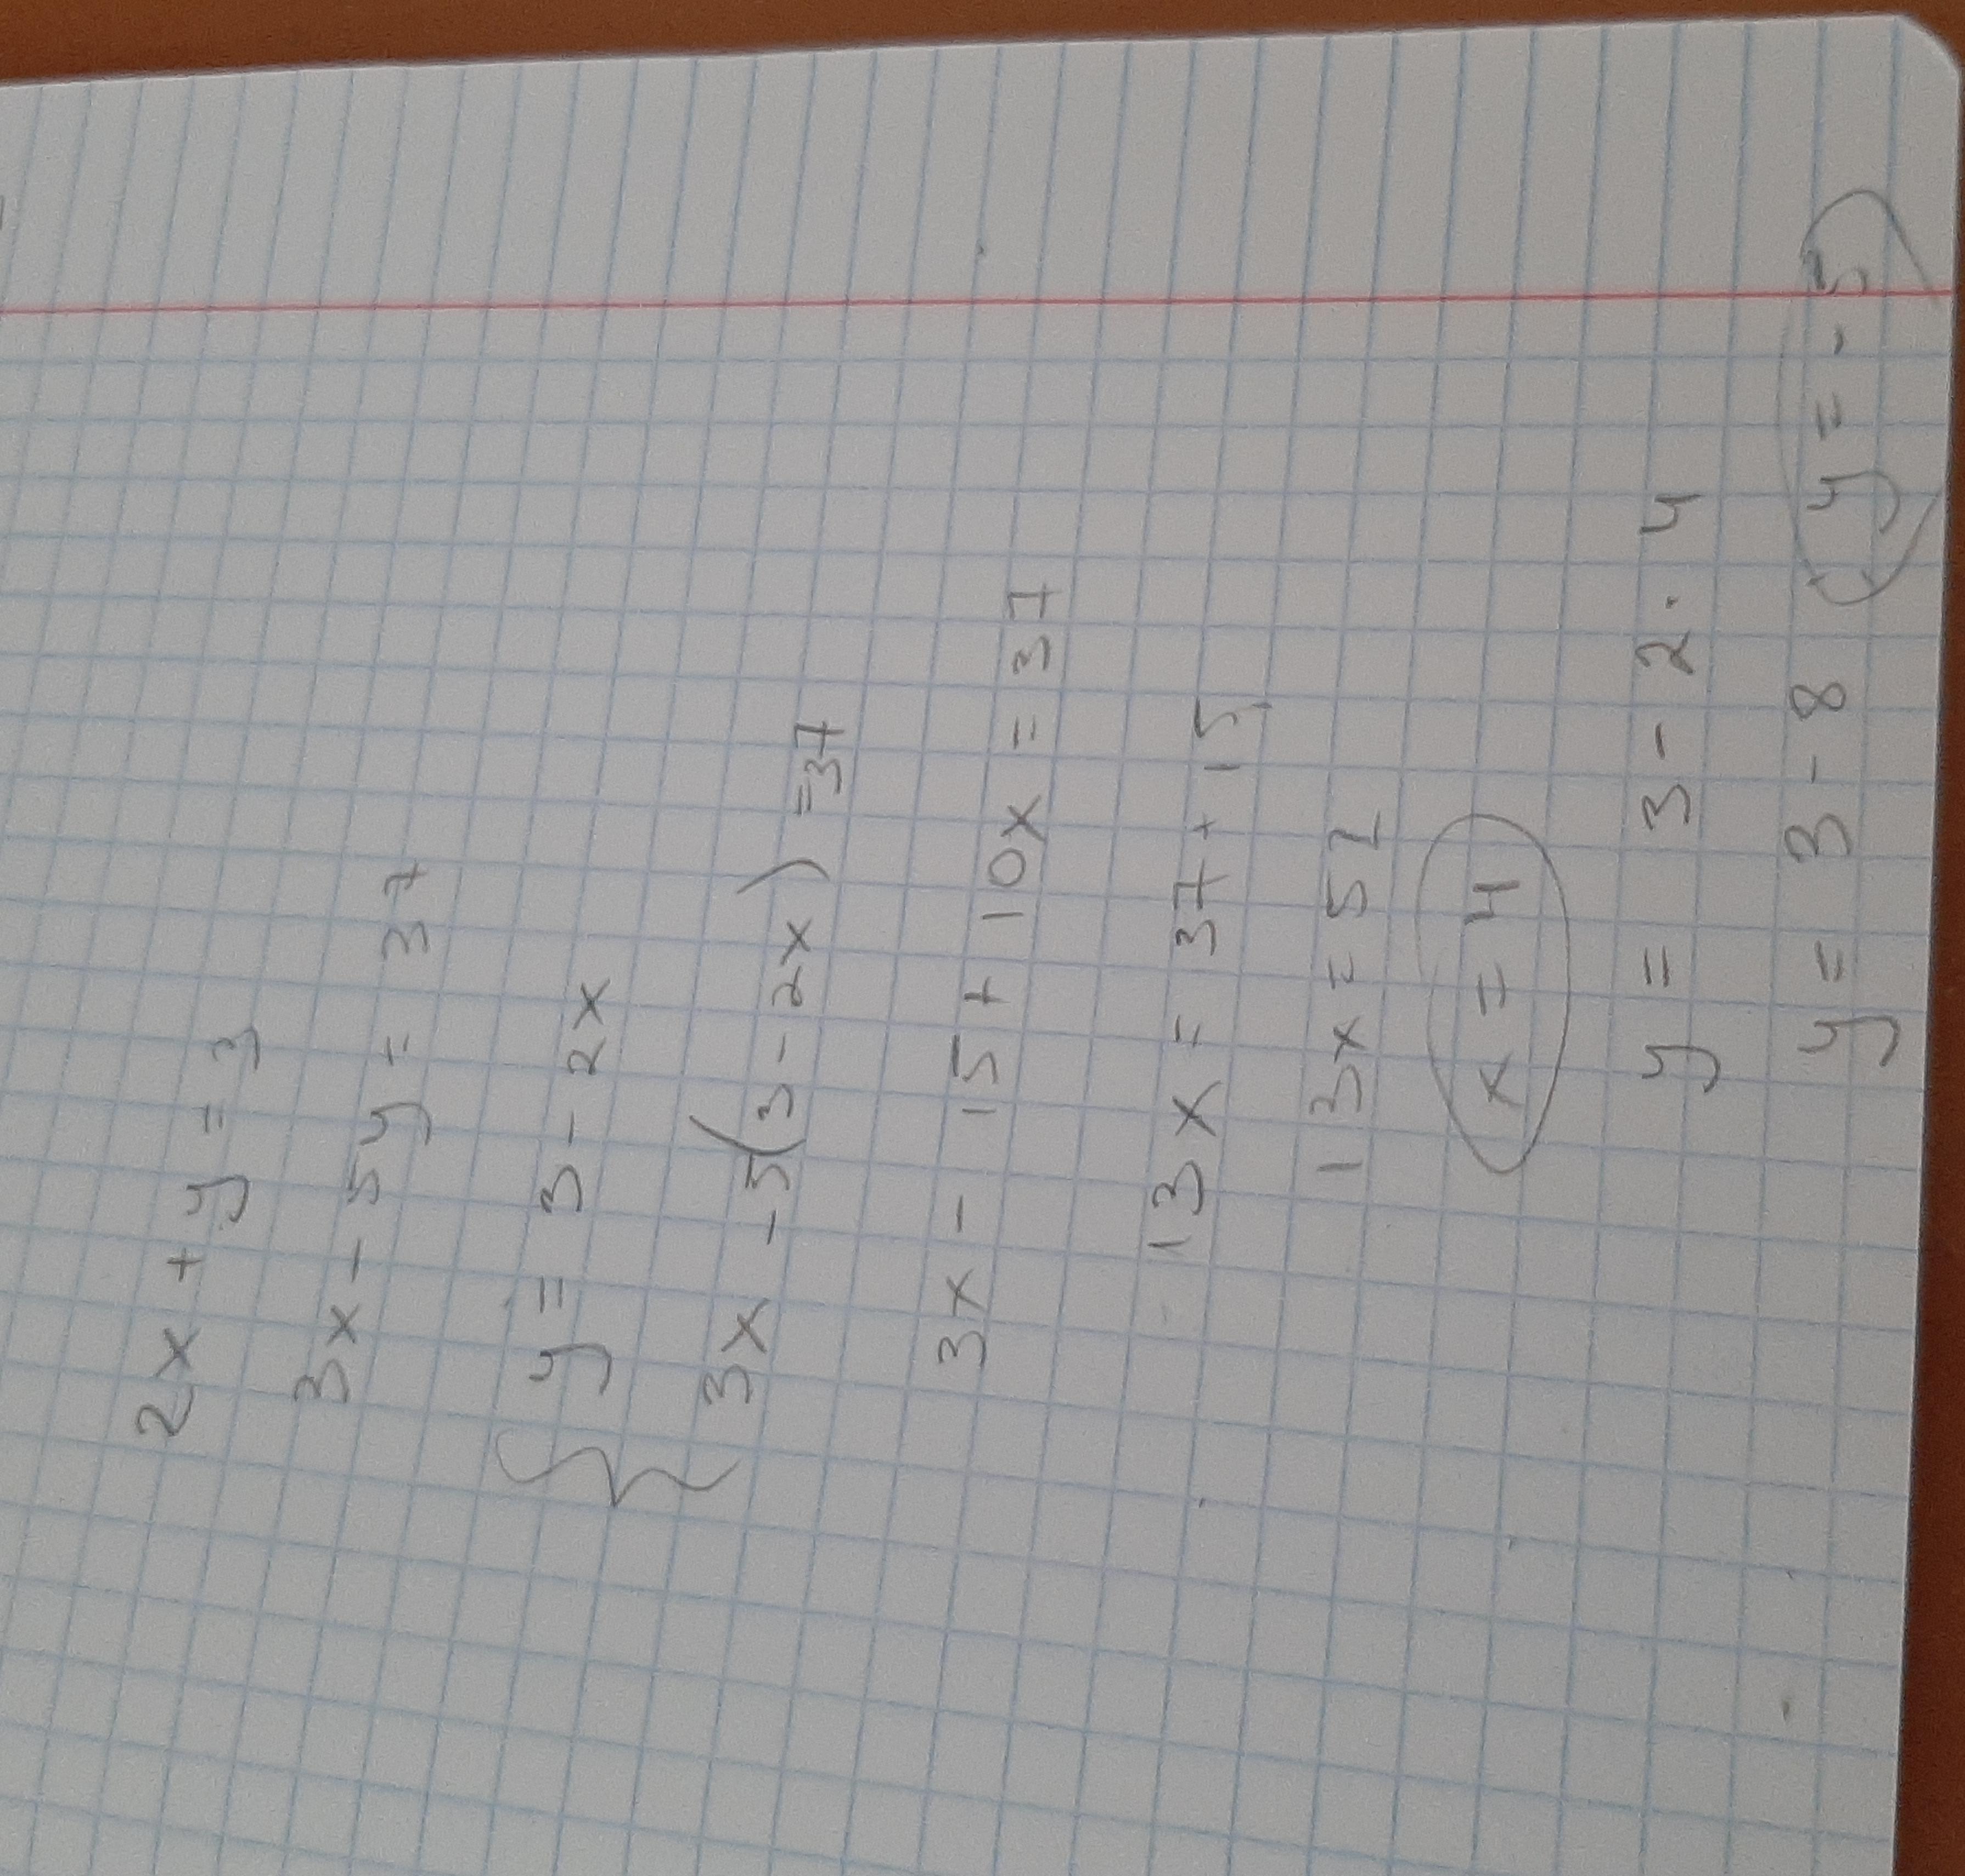 2x + y = 3
3x - 5y = 37
{ y = 3 - 2x
3x - 5(3 - 2x) = 37
3x - 15 + 10x = 37
13x = 37 + 15
13x = 52
x = 4
y = 3 - 2 · 4
y = 3 - 8 y = -5